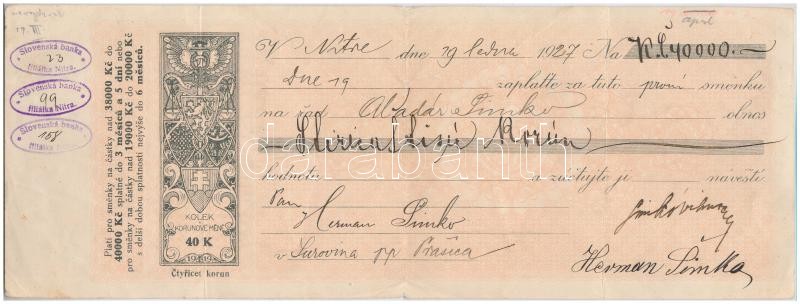 19. III
Slovenská banka
23
filiálka Nitra.
Slovenská banka
99
filiálka Nitra.
Slovenská banka
158
filiálka Nitra.
Platí pro směnky na částky nad 38000 Kč do
40000 Kč splatné do 3 měsíců a 5 dní nebo
pro směnky na částky nad 19000 Kč do 20000 Kč
s delší dobou splatnosti nejvýše do 6 měsíců.
KOLEK
KORUNOVÉ MĚNY
40 K
1919
Čtyřicet korun
V Nitre dne 29 ledna 1927 Na Kč 40000.–
Dne 19 zaplaťte za tuto první směnku
na řad Aladár Šimko obnos
Korún
hodnotu a zúčtujte ji návěští.
Pan
Herman Šimko
v Surovina pp Prašica
Herman Šimko
darabanth